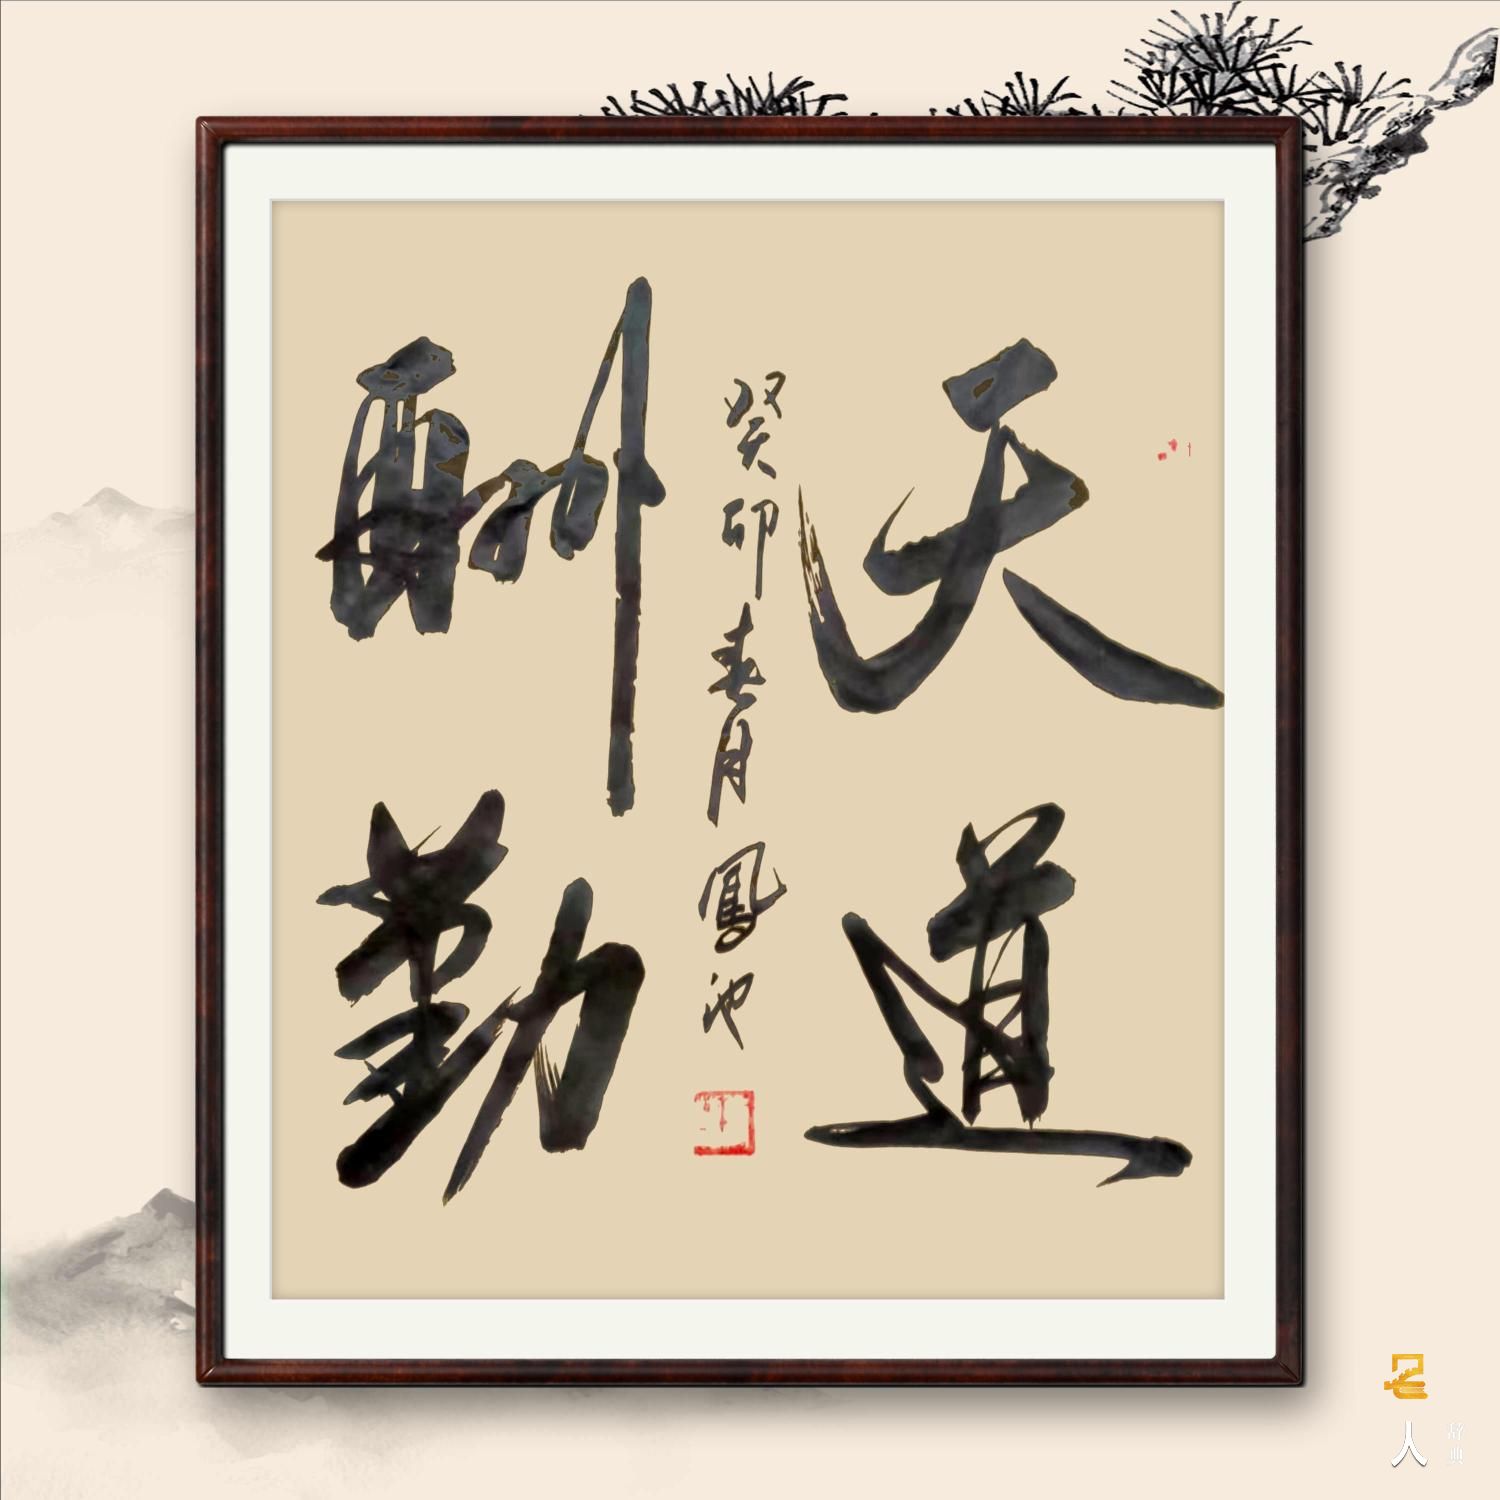 天道
癸卯春月鳳池
酬勤
名人
辞典